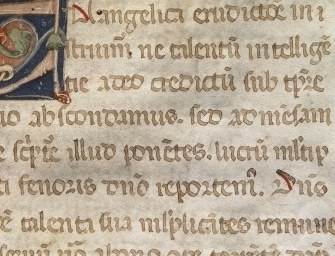 N angelici eruditiõe in i
struim̃ ne talentũ intelligẽ
tie a deo creditũ sub tp̃re
io abscondamus. sed ad mẽsam
e scp̃te illud ponẽtes. lucrũ ml̃tip
ti fenoris dño reportem᷒. Dñs
talenti sua ml̃plicãtes remun